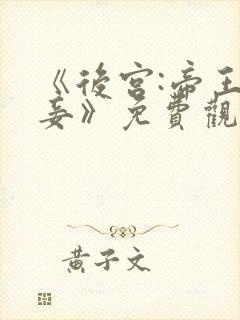 《後宮:帝王
妾》免費觀
黃子文